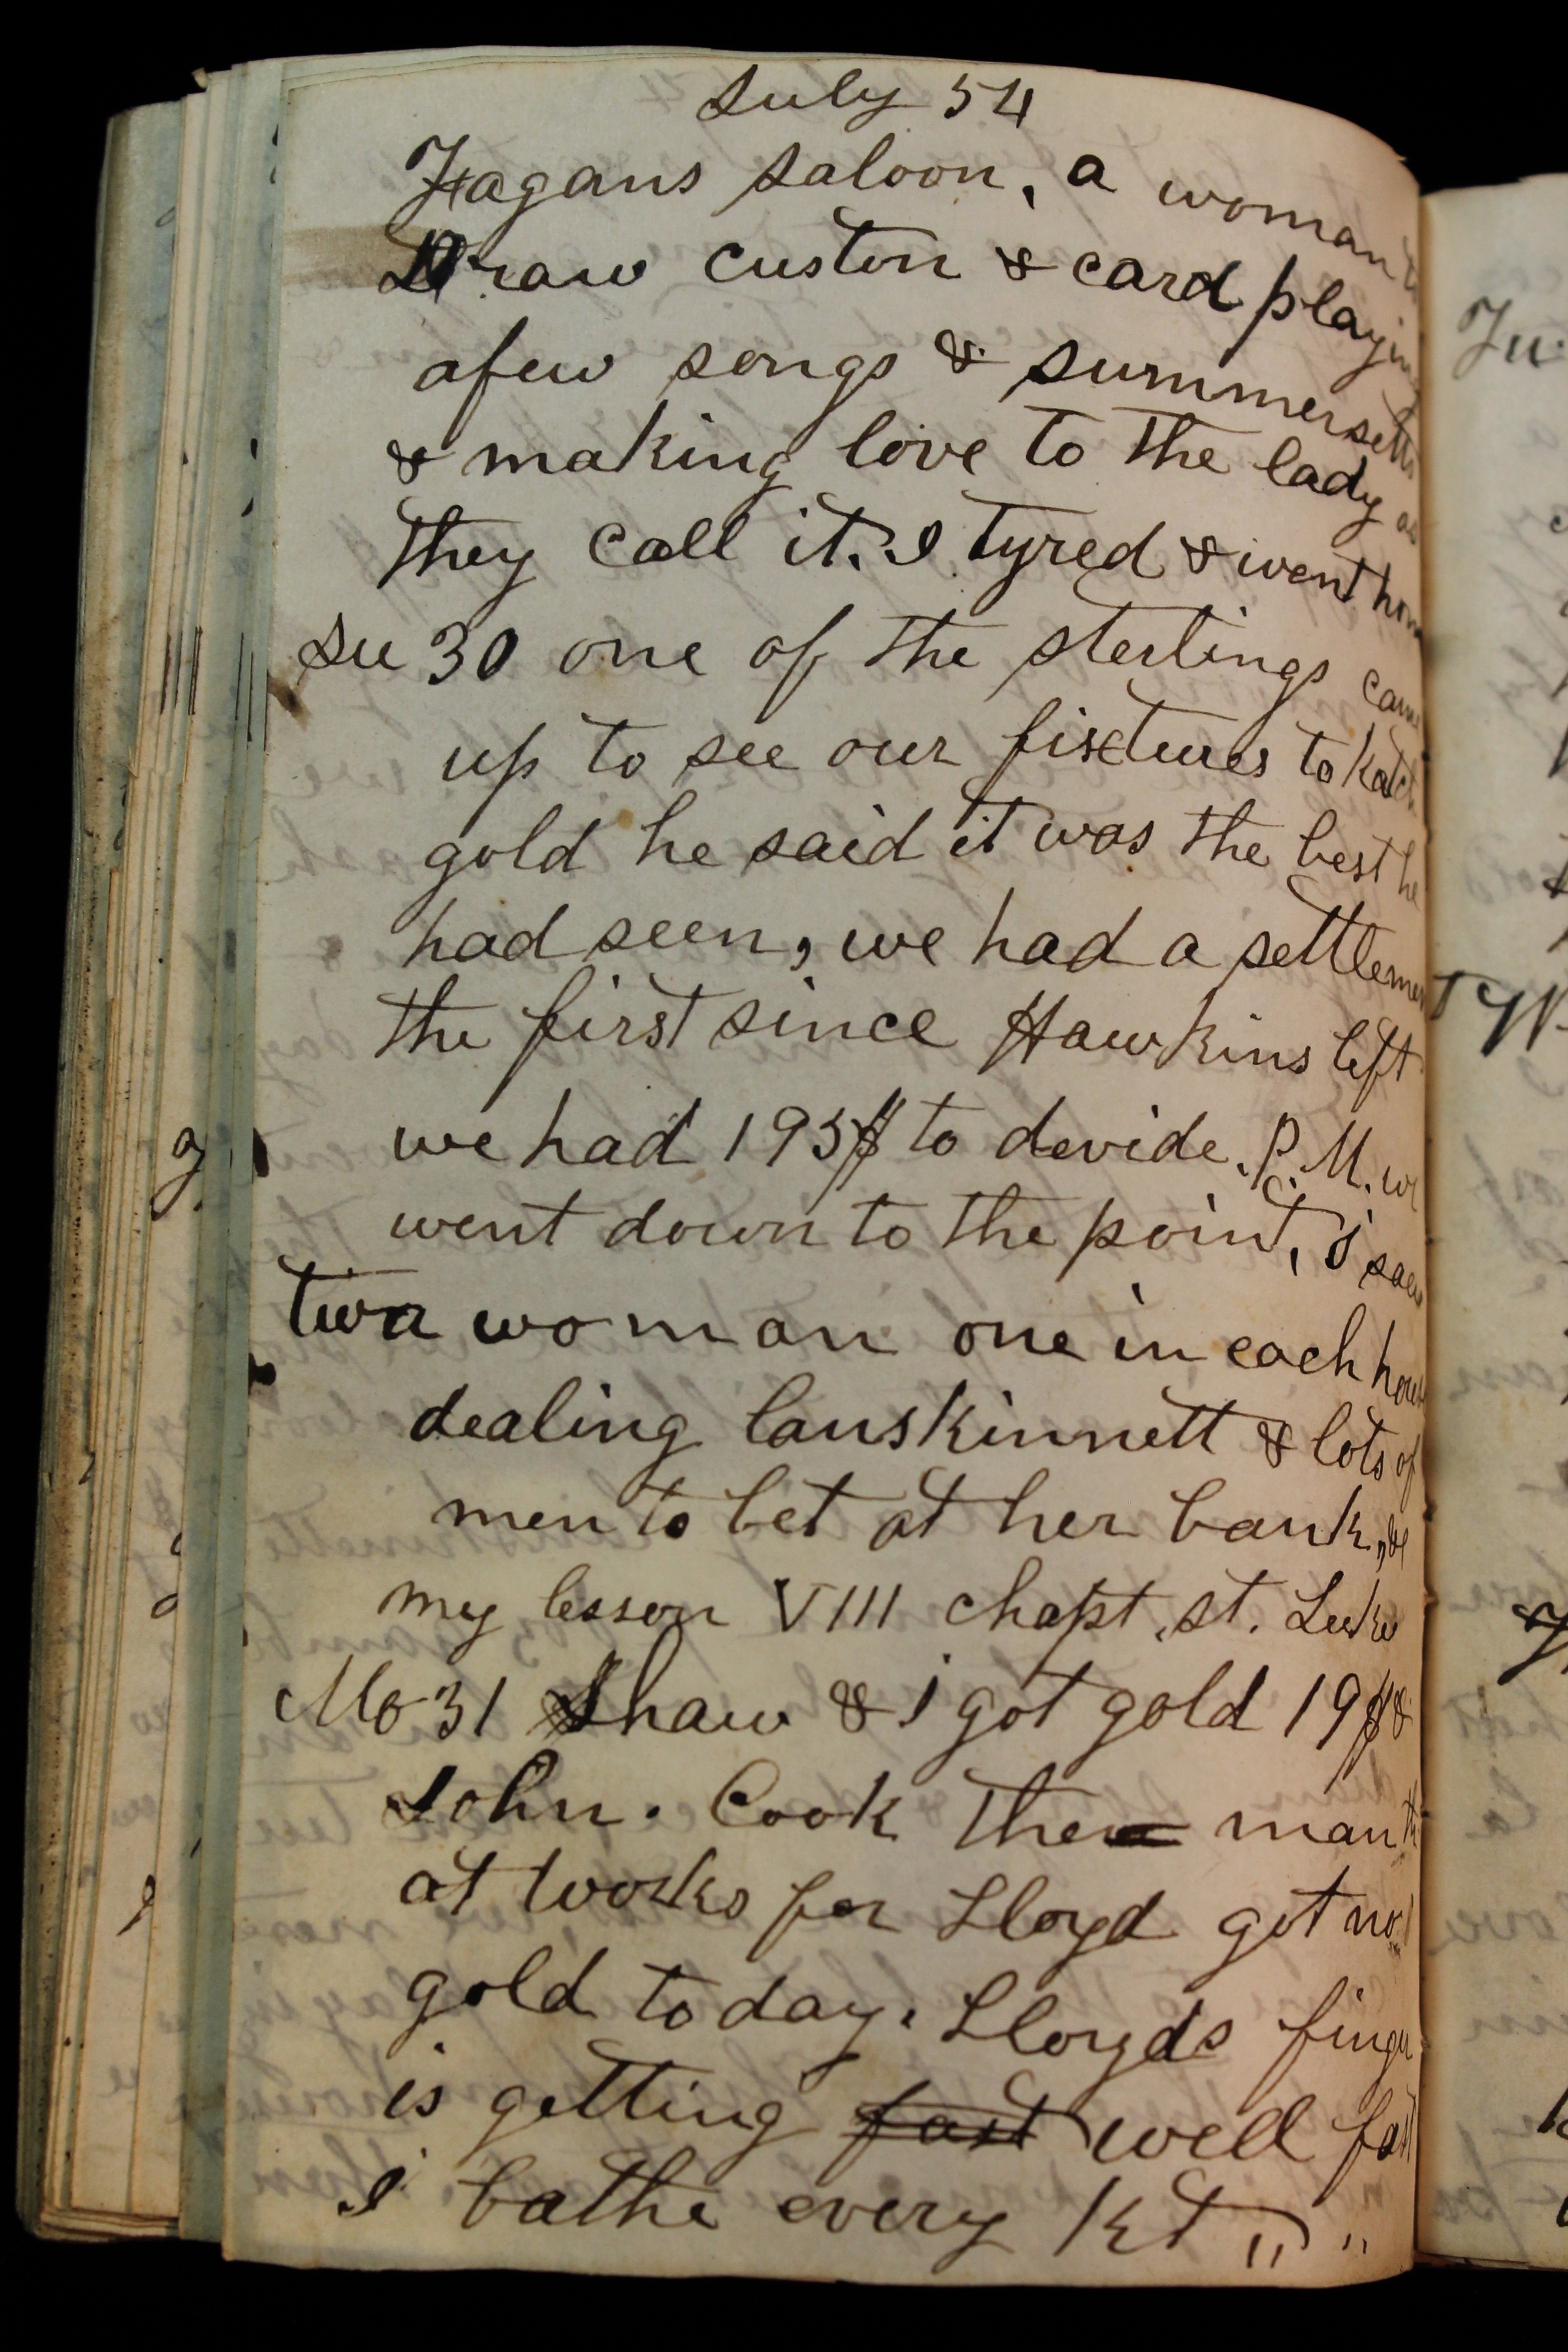 July 54
Fagans saloon, a woman to
Draw custom & card playing
afew songs & summersetts
& making love to the lady as
they call it. I tyred & went home
Su 30 one of the sterlings came
up to see our fixtures to katch
gold he said it was the best he
had seen, we had a settlement
the first since Hawkins left
we had 195$ to devide. P.M. we
went down to the point, i saw
two woman one in each house
dealing lanskinnett & lots of
men to bet at her bank, &c
my lesson VIII chapt. st. Luke
Mo 31 Shaw & I got gold 19$ &
John. Cook the man th
at works for Lloyd got no
gold today. Lloyds finger
is getting fast well fast
I bathe every kt " "